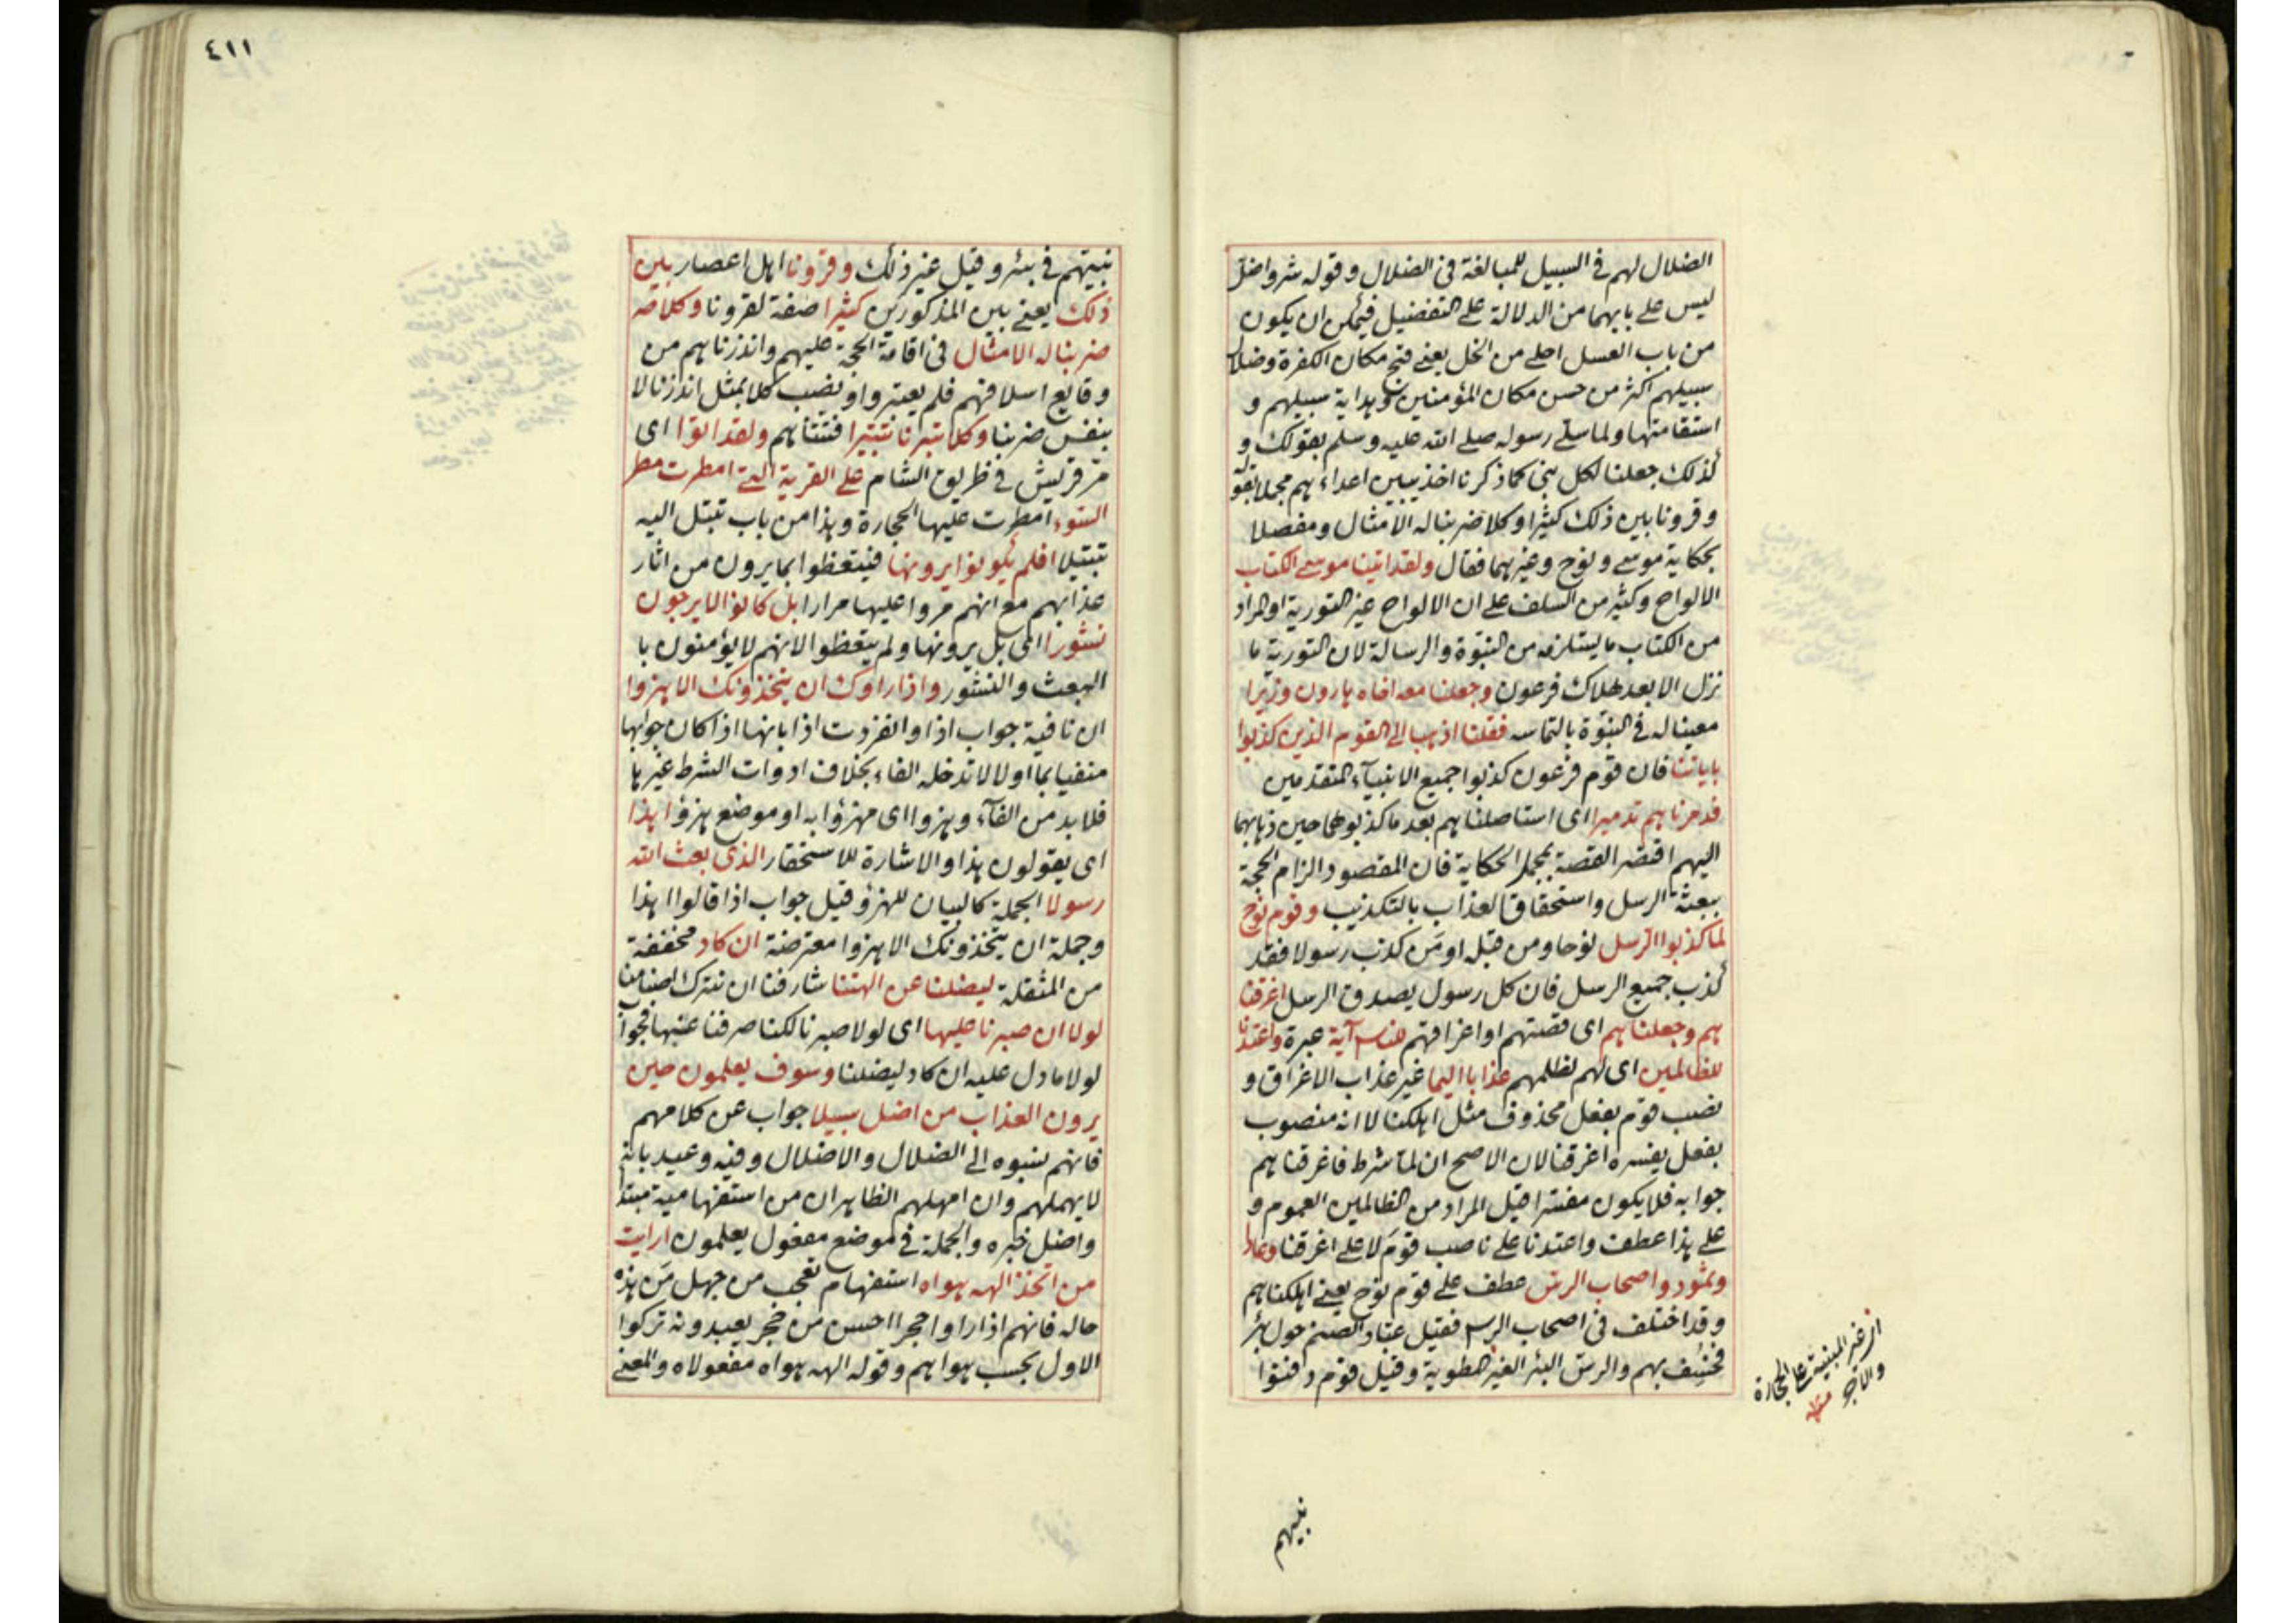 الضلال لهم في السبيل للمبالغة في الضلال وقوله شر واضل
ليس على بابهما من الدلالة على التفضيل فيمكن ان يكون
من باب العسل احلى من الخل يعنى قبح مكان الكفرة وضلال
سبيلهم اكثر من حسن مكان المؤمنين وهداية سبيلهم و
استقامتها ولما سلى رسوله صلى الله عليه وسلم بقوله و
كذلك جعلنا لكل نبى كما ذكرنا اخذ يبين اعداءهم مجملا بقوله
وقرونا بين ذلك كثيرا وكلا ضربنا له الامثال ومفصلا
بحكاية موسى ونوح وغيرهما فقال ولقد اتينا موسى الكتاب
الالواح وكثير من السلف على ان الالواح غير التورية او المراد
من الكتاب ما يستلزمه من النبوة والرسالة لان التورية ما
نزل الا بعد هلاك فرعون وجعلنا معه اخاه هارون وزيرا
معينا له في النبوة بالتماسه فقلنا اذهبا الى القوم الذين كذبوا
باياتنا فان قوم فرعون كذبوا جميع الانبيآء المتقدمين
فدمرناهم تدميرا اى استاصلناهم بعد ما كذبوهما حين ذهابهما
اليهم اقتصر القصة بمجمل الحكاية فان المقصود الزام الحجة
ببعثة الرسل واستحقاق العذاب بالتكذيب وقوم نوح
لما كذبوا الرسل نوحا ومن قبله او من كذب رسولا فقد
كذب جميع الرسل فان كل رسول يصدق الرسل اغرقنا
هم وجعلناهم اى قصتهم او اغراقهم للناس آية عبرة واعتدنا
للظالمين اى لهم لظلمهم عذابا اليما غير عذاب الاغراق و
نصب قوم بفعل محذوف مثل اهلكنا لا انه منصوب
بفعل يفسره اغرقنا لان الاصح ان لما شرط فاغرقناهم
جوابه فلا يكون مفسرا قيل المراد من الظالمين العموم و
على هذا عطف واعتدنا على ناصب قوم لا على اغرقنا وعادا
وثمود واصحاب الرس عطف على قوم نوح يعنى اهلكناهم
وقد اختلف في اصحاب الرس فقيل عباد الصنم حول بئر
فخسف بهم والرس البئر الغير المطوية وقيل قوم دفنوا
اى غير المبنية بالحجارة
والاجر منه
نبيهم
٤١١
نبيهم في بئر وقيل غير ذلك وقرونا اهل اعصار بين
ذلك يعنى بين المذكورين كثيرا صفة لقرونا وكلا
ضربنا له الامثال في اقامة الحجة عليهم وانذرناهم من
وقايع اسلافهم فلم يعتبروا ونصب كلا بمثل انذرنا لا
بنفس ضربنا وكلا تبرنا تتبيرا فتتناهم ولقد اتوا اى
مر قريش في طريق الشام على القرية التى امطرت مطر
السوء امطرت عليها الحجارة وهذا من باب تبتل اليه
تبتيلا افلم يكونوا يرونها فيتعظوا بما يرون من اثار
عذابهم مع انهم مروا عليها مرارا بل كانوا لا يرجون
نشورا اى بل يرونها ولم يتعظوا لانهم لا يؤمنون با
البعث والنشور واذا راوك ان يتخذونك الا هزوا
ان نافية جواب اذا وانفردت اذا بانها اذا كان جوابها
منفيا بما او لا لا تدخله الفاء بخلاف ادوات الشرط غيرها
فلابد من الفآء وهزوا اى مهزؤا به او موضع هزؤ اهذا
اى يقولون هذا والاشارة للاستحقار الذى بعث الله
رسولا الجملة كالبيان للهزؤ وقيل جواب اذا قالوا اهذا
وجملة ان يتخذونك الا هزوا معترضة ان كاد مخففة
من المثقلة ليضلنا عن الهتنا شارفنا ان نترك اصنامنا
لولا ان صبرنا عليها اى لولا صبرنا لكنا صرفنا عنها فجواب
لولا ما دل عليه ان كاد ليضلنا وسوف يعلمون حين
يرون العذاب من اضل سبيلا جواب عن كلامهم
فانهم نسبوه الى الضلال والاضلال وفيه وعيد بانه
لا يهملهم وان امهلهم الظاهر ان من استفهامية مبتدا
واضل خبره والجملة في موضع مفعول يعلمون ارايت
من اتخذ الهه هواه استفهام تعجب من جهل من هذه
حاله فانهم اذا راوا حجرا احسن من حجر يعبدونه تركوا
الاول بحسب هواهم وقوله الهه هواه مفعولاه والمعنى